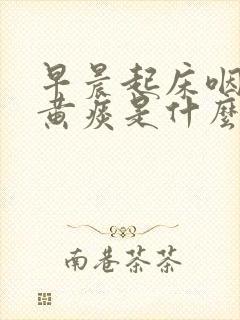 早晨起床咽
黄痰是什麼
南巷茶茶